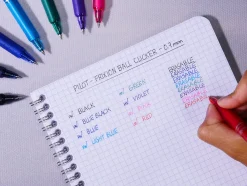 PILOT - FRIXION BALL CLICKER - 0.7mm
BLACK
BLUE BLACK
BLUE
LIGHT BLUE
GREEN
VIOLET
PINK
RED
ERASABLE
ERASABLE
ERASABLE
ERASABLE
ERASABLE
ERASABLE
ERASABLE